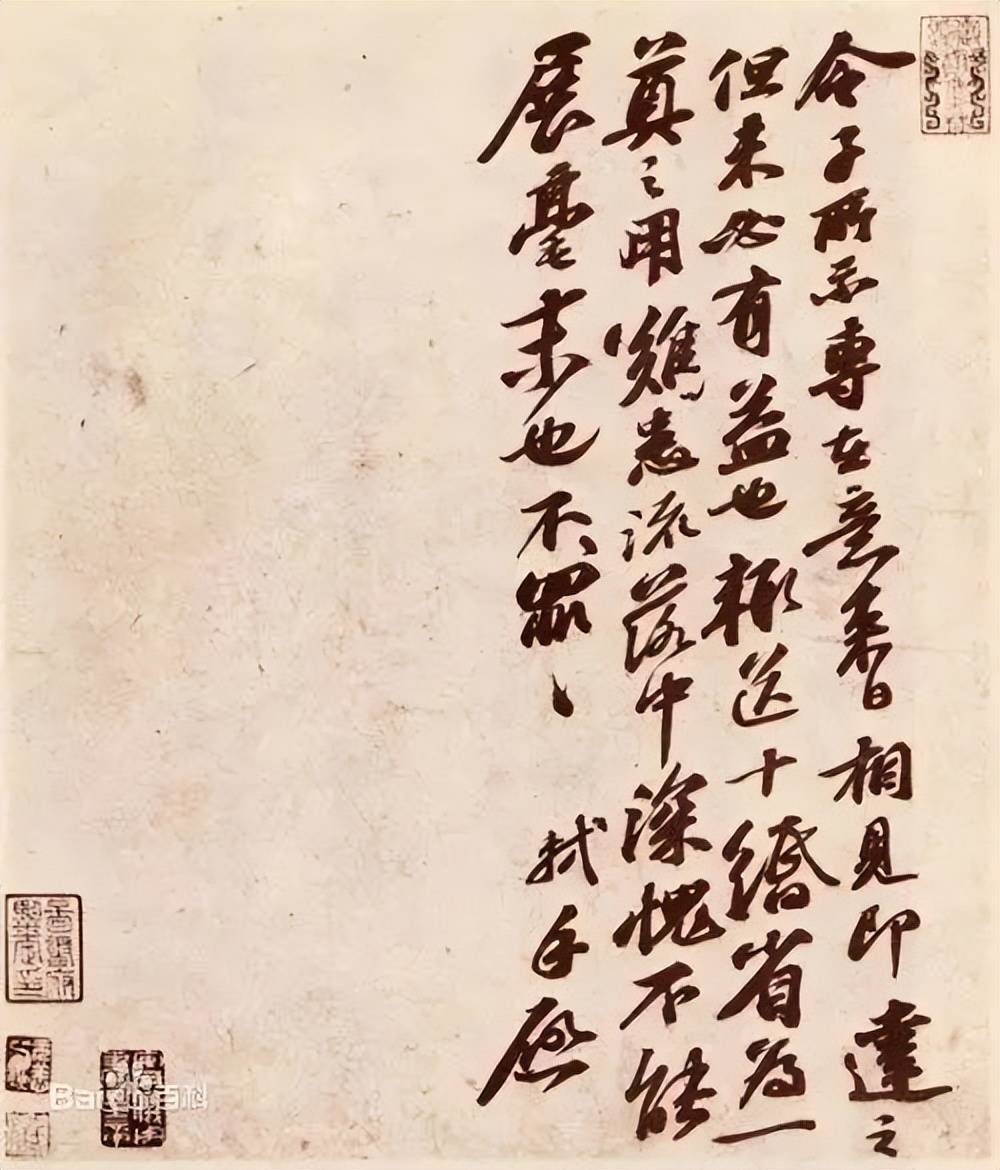 令子所示專在意來日相見即達之
但未必有益也輒送十緡省為一
奠之用難患流落中深愧不能
展毫末也不罪、、軾手啟
Bai百科